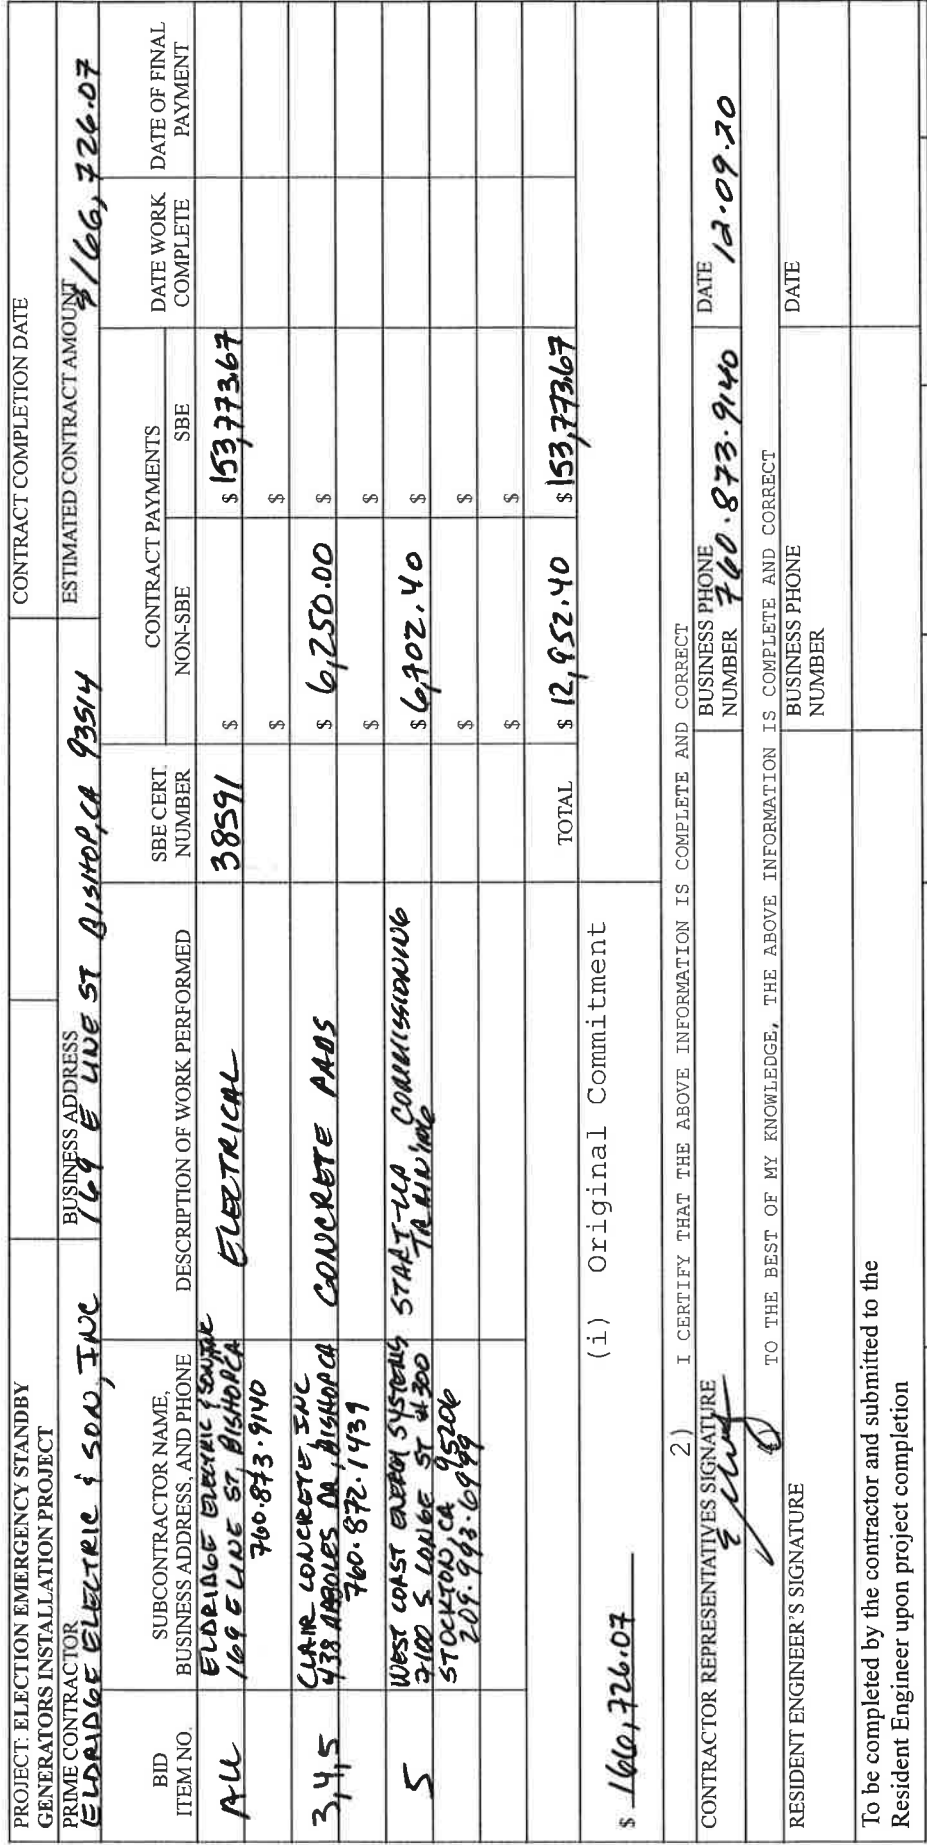 PROJECT: ELECTION EMERGENCY STANDBY
GENERATORS INSTALLATION PROJECT
CONTRACT COMPLETION DATE
PRIME CONTRACTOR
ELDRIDGE ELECTRIC & SON, INC
BUSINESS ADDRESS
169 E LINE ST BISHOP, CA 93514
ESTIMATED CONTRACT AMOUNT
$166,726.07
BID
ITEM NO.
SUBCONTRACTOR NAME,
BUSINESS ADDRESS, AND PHONE
DESCRIPTION OF WORK PERFORMED
SBE CERT.
NUMBER
CONTRACT PAYMENTS
NON-SBE
SBE
DATE WORK
COMPLETE
DATE OF FINAL
PAYMENT
ALL
ELDRIDGE ELECTRIC & SON INC
169 E LINE ST, BISHOP CA
760.873.9140
ELECTRICAL
38591
$
$ 153,773.67
$ $
3,4,5
CLAIR CONCRETE INC
438 ARBOLES DR, BISHOP CA
760.872.1439
CONCRETE PADS
$ 6,250.00
$
$ $
5
WEST COAST ENERGY SYSTEMS
7100 S LONGE ST #300
STOCKTON, CA 95206
209.993.6999
START-UP, COMMISSIONING
TRAINING
$ 6,702.40
$
$ $
$ $
TOTAL
$ 12,952.40
$ 153,773.67
$ 166,726.07
(i) Original Commitment
2) I CERTIFY THAT THE ABOVE INFORMATION IS COMPLETE AND CORRECT
CONTRACTOR REPRESENTATIVES SIGNATURE
BUSINESS PHONE
NUMBER 760.873.9140
DATE 12.09.20
TO THE BEST OF MY KNOWLEDGE, THE ABOVE INFORMATION IS COMPLETE AND CORRECT
RESIDENT ENGINEER'S SIGNATURE
BUSINESS PHONE
NUMBER
DATE
To be completed by the contractor and submitted to the
Resident Engineer upon project completion